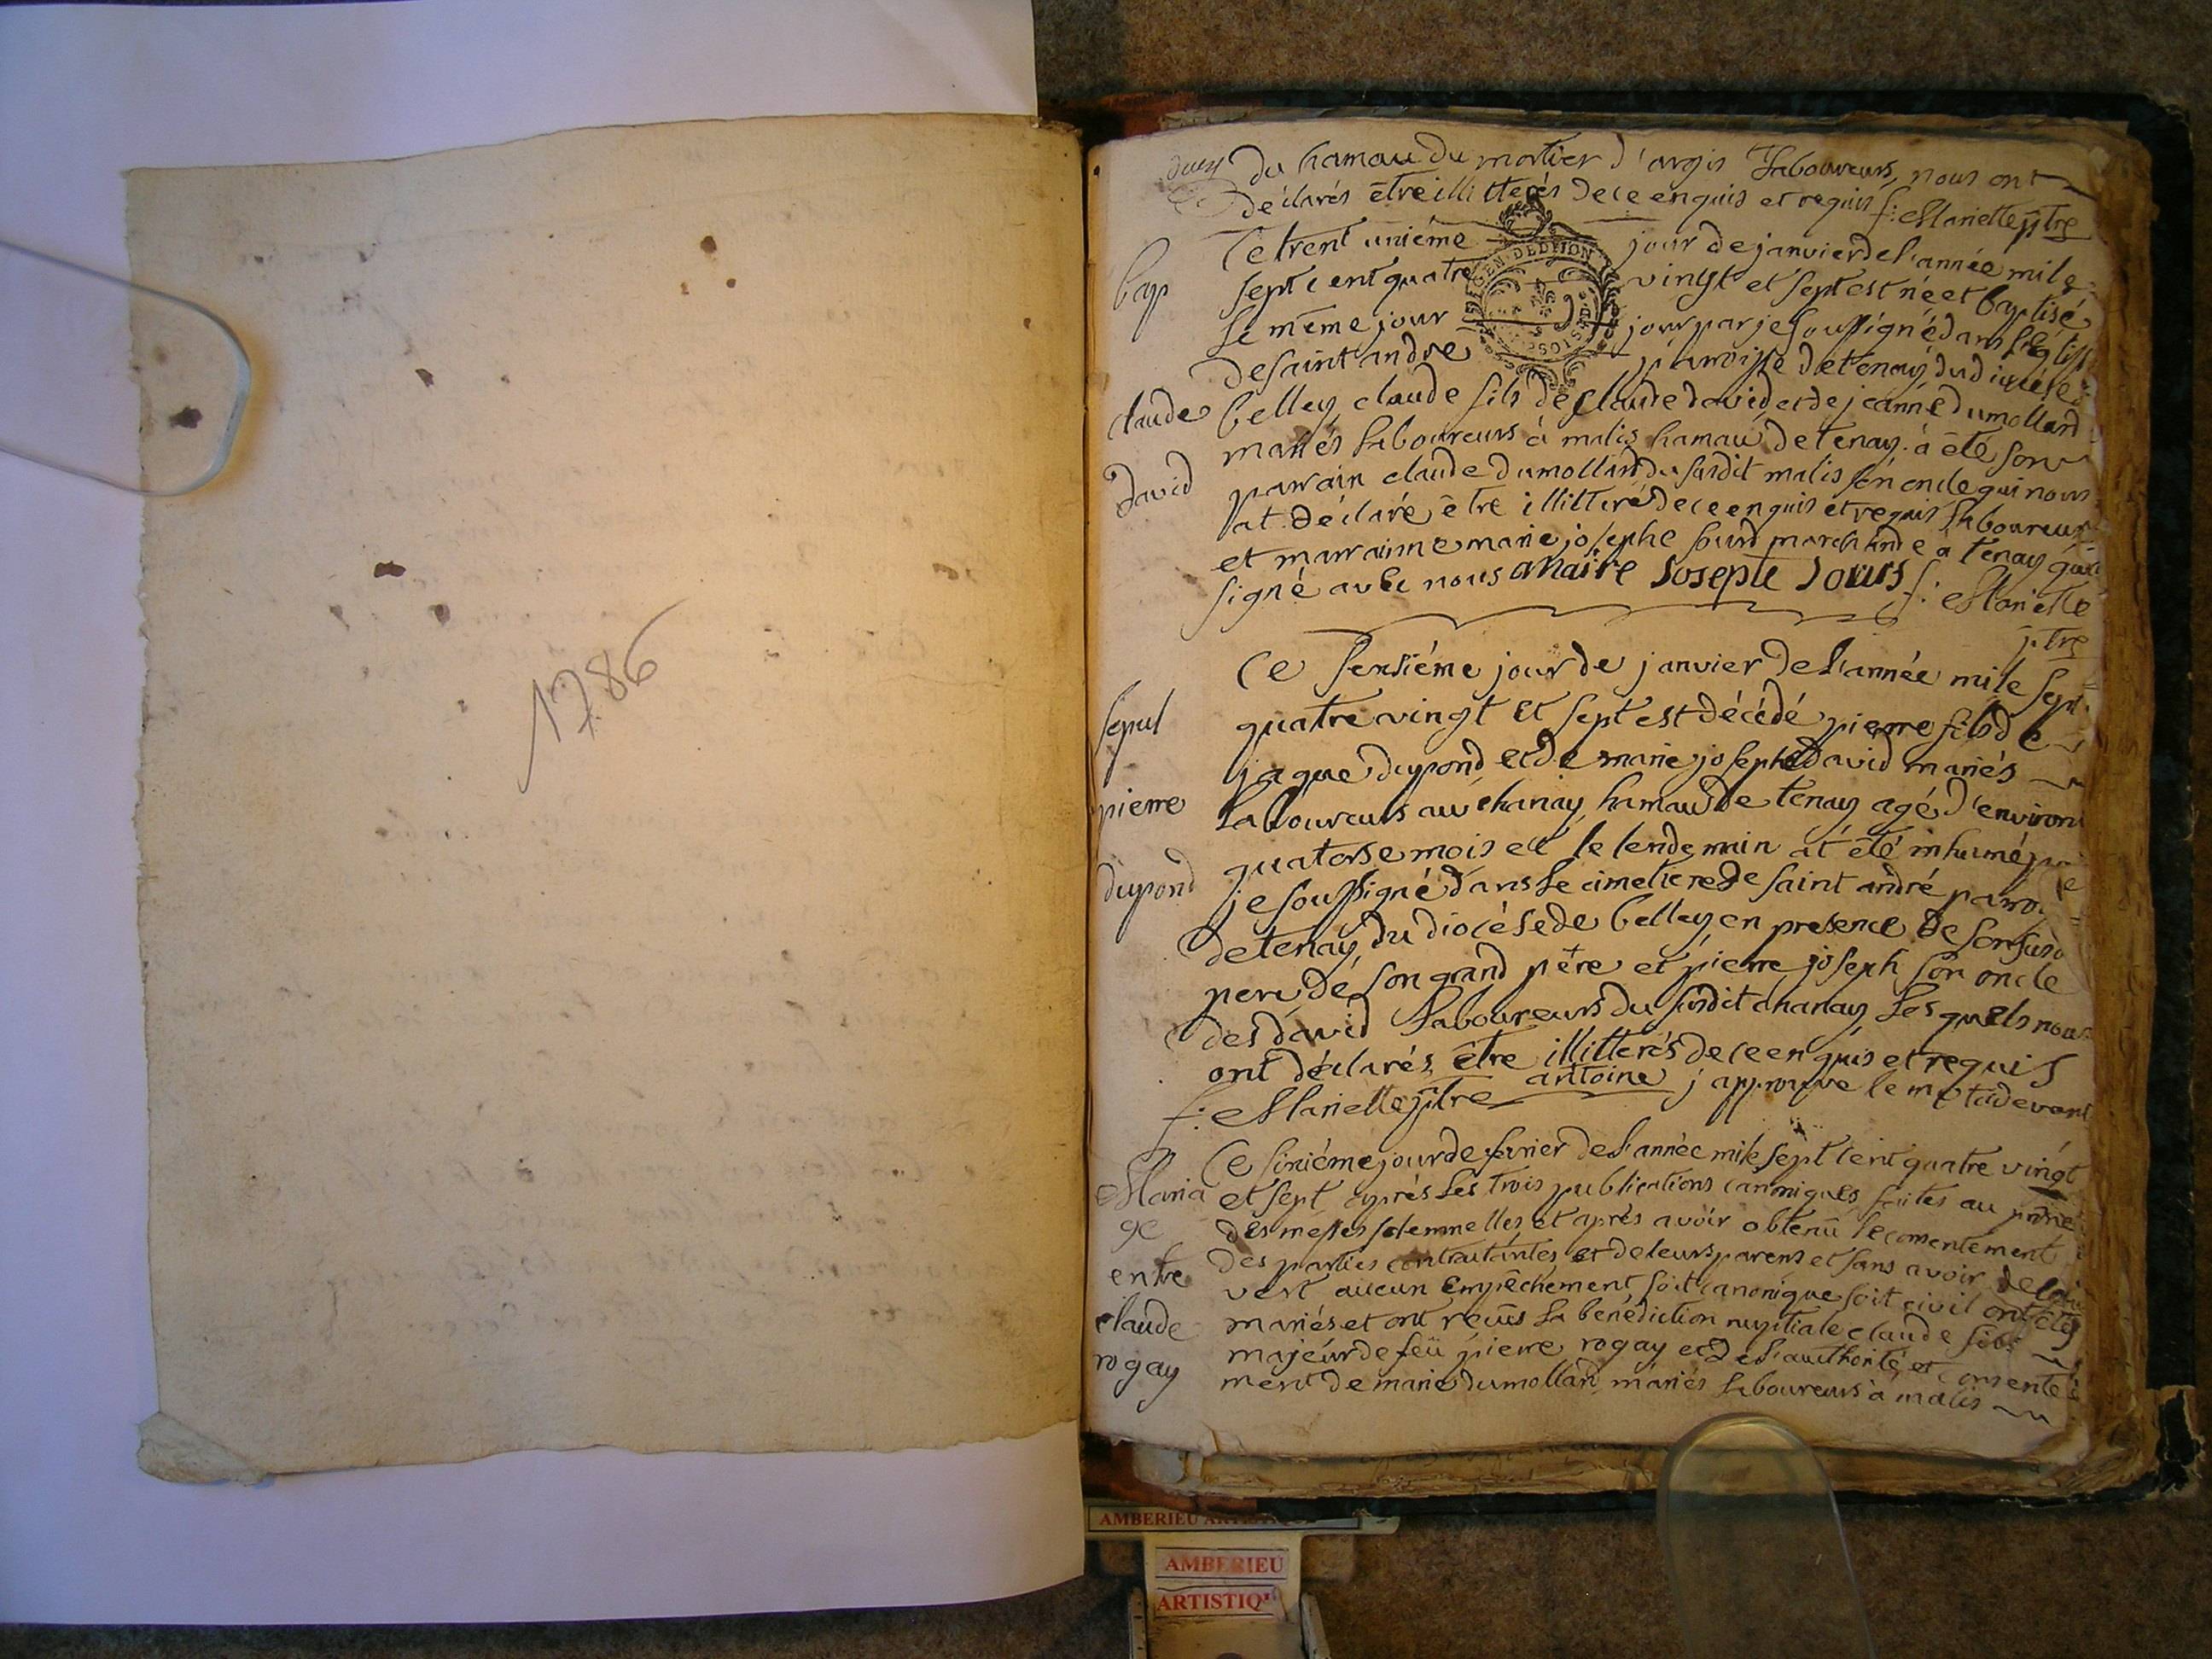 1786
du hamau du mortier d'argis Laboureurs, nous ont
déclarés être illitterés de ce enquis et requis f: Mariette ptre
bap
Ce trent uniéme jour de janvier de l'année mile
sept cent quatre vingt et sept est né et baptisé
le même jour jour par je soussigné dans l'Eglise
de saint andre parroisse de tenay du diocése
claude
belley claude fils de claude david et de jeanne dumollard
mariés Laboureurs à malis hamau de tenay. à été son
david
parrain claude dumollard du susdit malis son oncle qui nous
at déclaré être illitteré de ce enquis et requis Laboureur
et marrainne marie josephe sourd marchande à tenay qui
signé avec nous Maire Josepte Sours f: Mariette
ptre
Ce sensiéme jour de janvier de l'année mile sept
sepul
quatre vingt et sept est décédé pierre fils de
jaque dupond et de marie josephe david mariés
pierre
Laboureurs au chanay hamau de tenay agé d'environ
quatorse mois et le lendemain at été inhumé
dupond
je soussigné dans le cimetiere de saint andré
de tenay du diocése de belley en presence de son
pere de son grand pére et pierre joseph son oncle
des david Laboureurs du susdit chanay Lesquels nous
ont déclarés être illitterés de ce enquis et requis
f: Mariette ptre antoine j'approuve le mot
Ce sixiéme jour de fevrier de l'année mile sept cent quatre vingt
Maria
et sept aprés les trois publications canoniques faites au prône
ge
des messes solemnelles et aprés avoir obtenu le consentement
des parties contractantes et de leurs parens et sans avoir
entre
vert aucun empêchement, soit canonique soit civil ont étés
claude
mariés et ont reçus la benédiction nuptiale claude fils
rogay
majeur de feü pierre rogay et de l'authorité et consente
ment de marie dumollard mariés Laboureurs à malis
AMBERIEU
AMBERIEU
ARTISTIQU